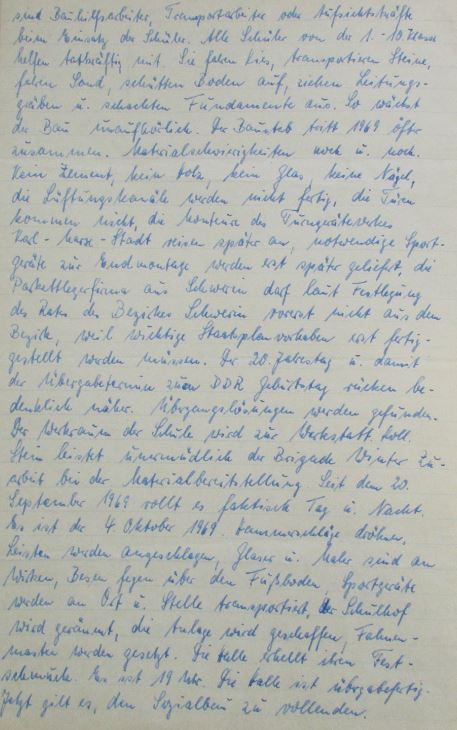 sind Bauhilfsarbeiter, Transportarbeiter oder Aufsichtskräfte
beim Einsatz der Schüler. Alle Schüler von der 1.-10. Klasse
helfen tatkräftig mit. Sie fahren Kies, transportieren Steine,
fahren Sand, schütten Boden auf, ziehen Leitungs-
gräben u. schachten Fundamente aus. So wächst
der Bau unaufhörlich. Der Baustab tritt 1969 öfter
zusammen. Materialschwierigkeiten noch u. noch.
Kein Zement, kein Holz, kein Glas, keine Nägel,
die Lüftungskanäle werden nicht fertig, die Türen
kommen nicht, die Monteure des Turngerätewerkes
Karl-Marx-Stadt reisen später an, notwendige Sport-
geräte zur Endmontage werden erst später geliefert, die
Parkettlegerfirma aus Schwerin darf laut Festlegung
des Rates des Bezirkes Schwerin vorerst nicht aus dem
Bezirk, weil wichtige Staatsplanvorhaben erst fertig-
gestellt werden müssen. Der 20. Jahrestag u. damit
der Übergabetermin zum DDR Geburtstag rücken be-
denklich näher. Übergangslösungen werden gefunden.
Der Werkraum der Schule wird zur Werkstatt. Koll.
Stein leistet unermüdlich der Brigade Winter Zu-
arbeit bei der Materialbereitstellung. Seit dem 20.
September 1969 rollt es faktisch Tag u. Nacht.
Es ist der 4. Oktober 1969. Hammerschläge dröhnen,
Leisten werden angeschlagen, Glaser u. Maler sind am
Wirken, Besen fegen über den Fußboden, Sportgeräte
werden an Ort u. Stelle transportiert, der Schulhof
wird geräumt, die Anlage wird geschaffen, Fahnen-
masten werden gesetzt. Die Halle erhellt ihren Fest-
schmuck. Es ist 19 Uhr. Die Halle ist übergabefertig.
Jetzt gilt es, den Sozialbau zu vollenden.